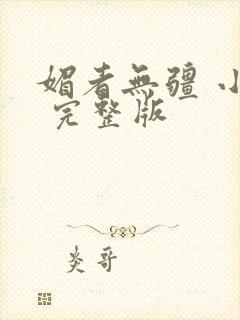 媚者無疆 小
完整版
炎哥